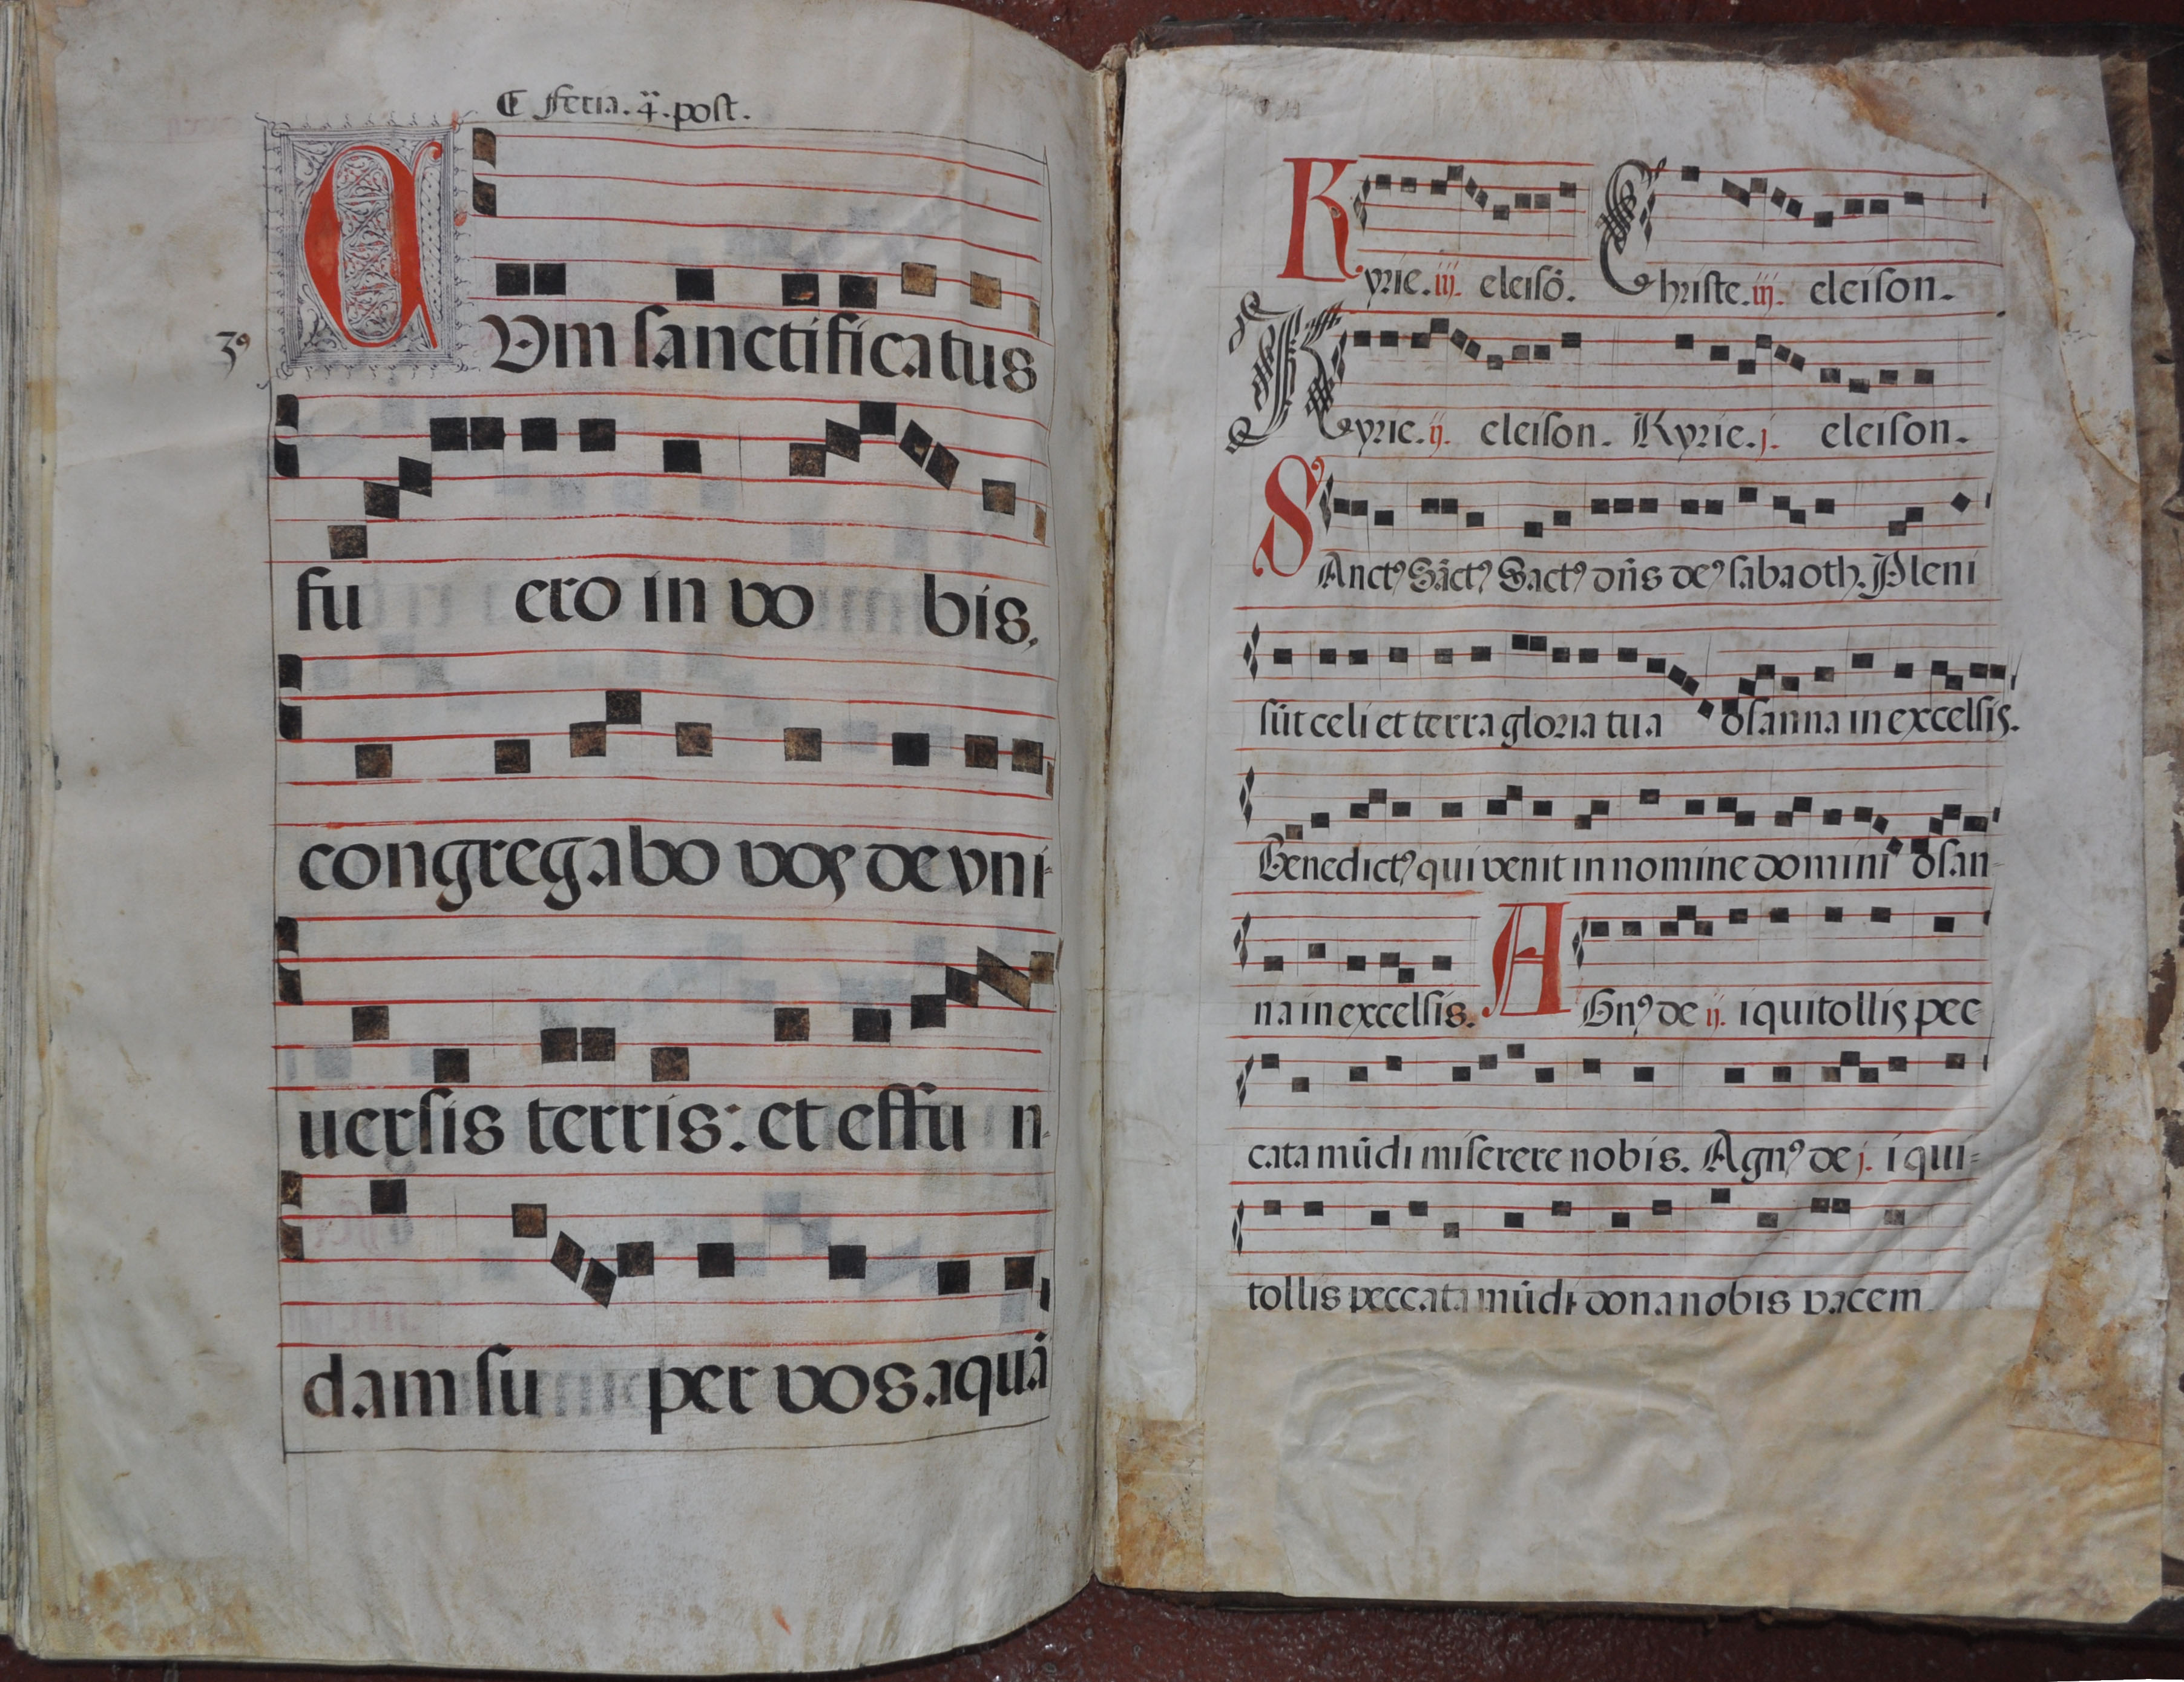 ¶ feria. 4ª. post.
3⁹
CVm sanctificatus
fu ero in vo bis.
congregabo vos de vni-
uersis terris: et effu n-
dam su per vos aquā
Kyrie. iij. eleisō. Christe. iij. eleison.
Kyrie. ij. eleison. Kyrie. j. eleison.
SAnctꝰ Sāctꝰ Sactꝰ dn̄s deꝰ sabaoth. Pleni
sūt celi et terra gloria tua osanna in excelsis.
Benedictꝰ qui venit in nomine domini osan-
na in excelsis. AGnꝰ de ij. i qui tollis pec
cata mūdi miserere nobis. Agnꝰ de j. i qui-
tollis peccata mūdi dona nobis pacem